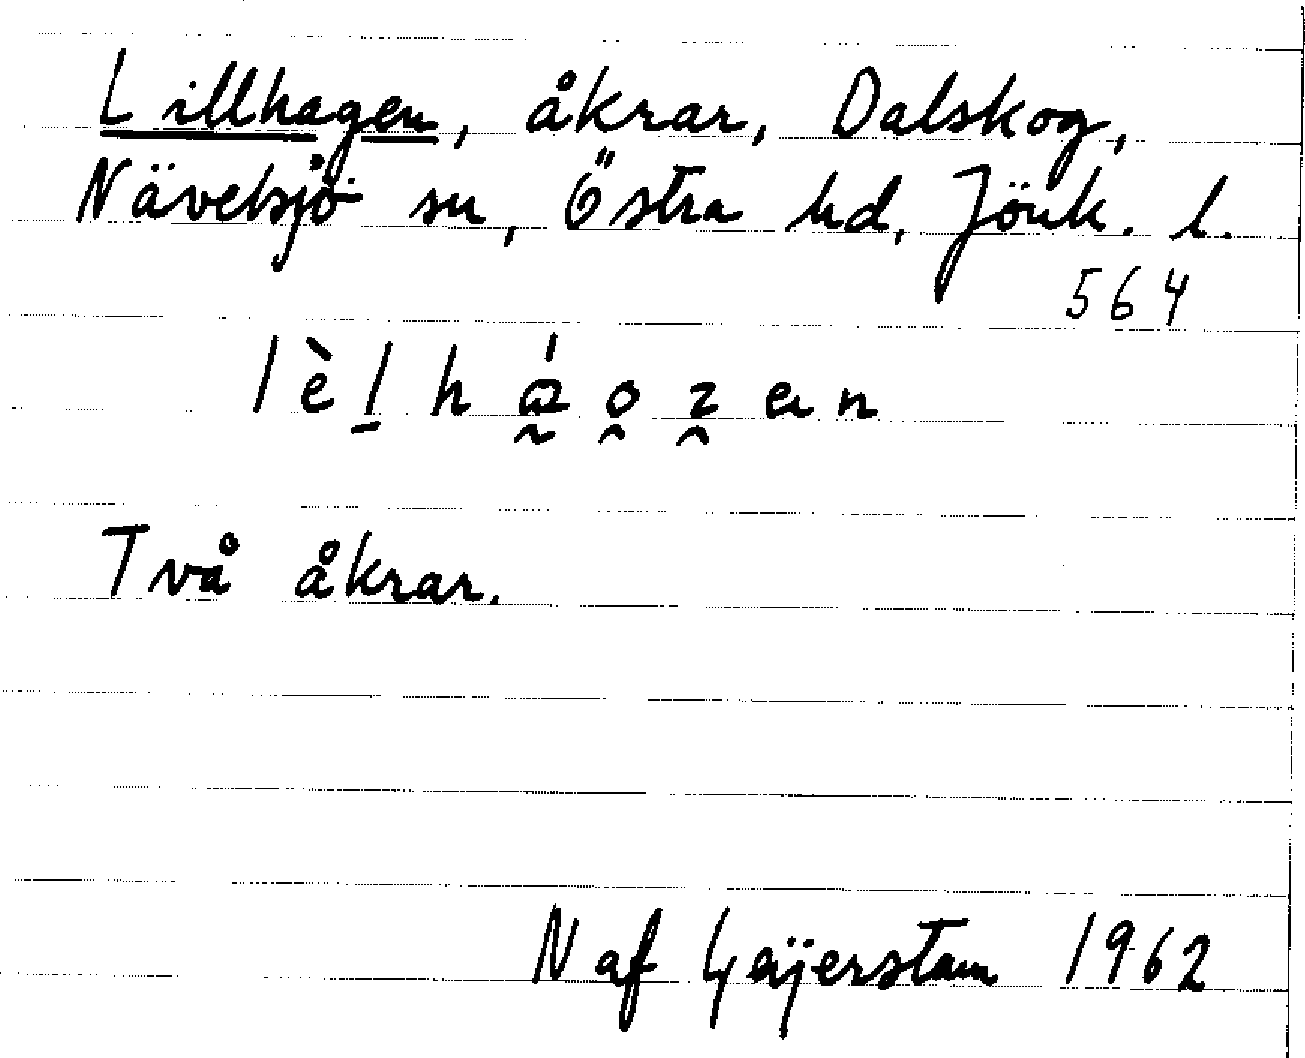 Lillhagen, åkrar, Dalskog,
Nävelsjö sn, Östra hd, Jönk. l.
564
Två åkrar.
N af Geijerstam 1962